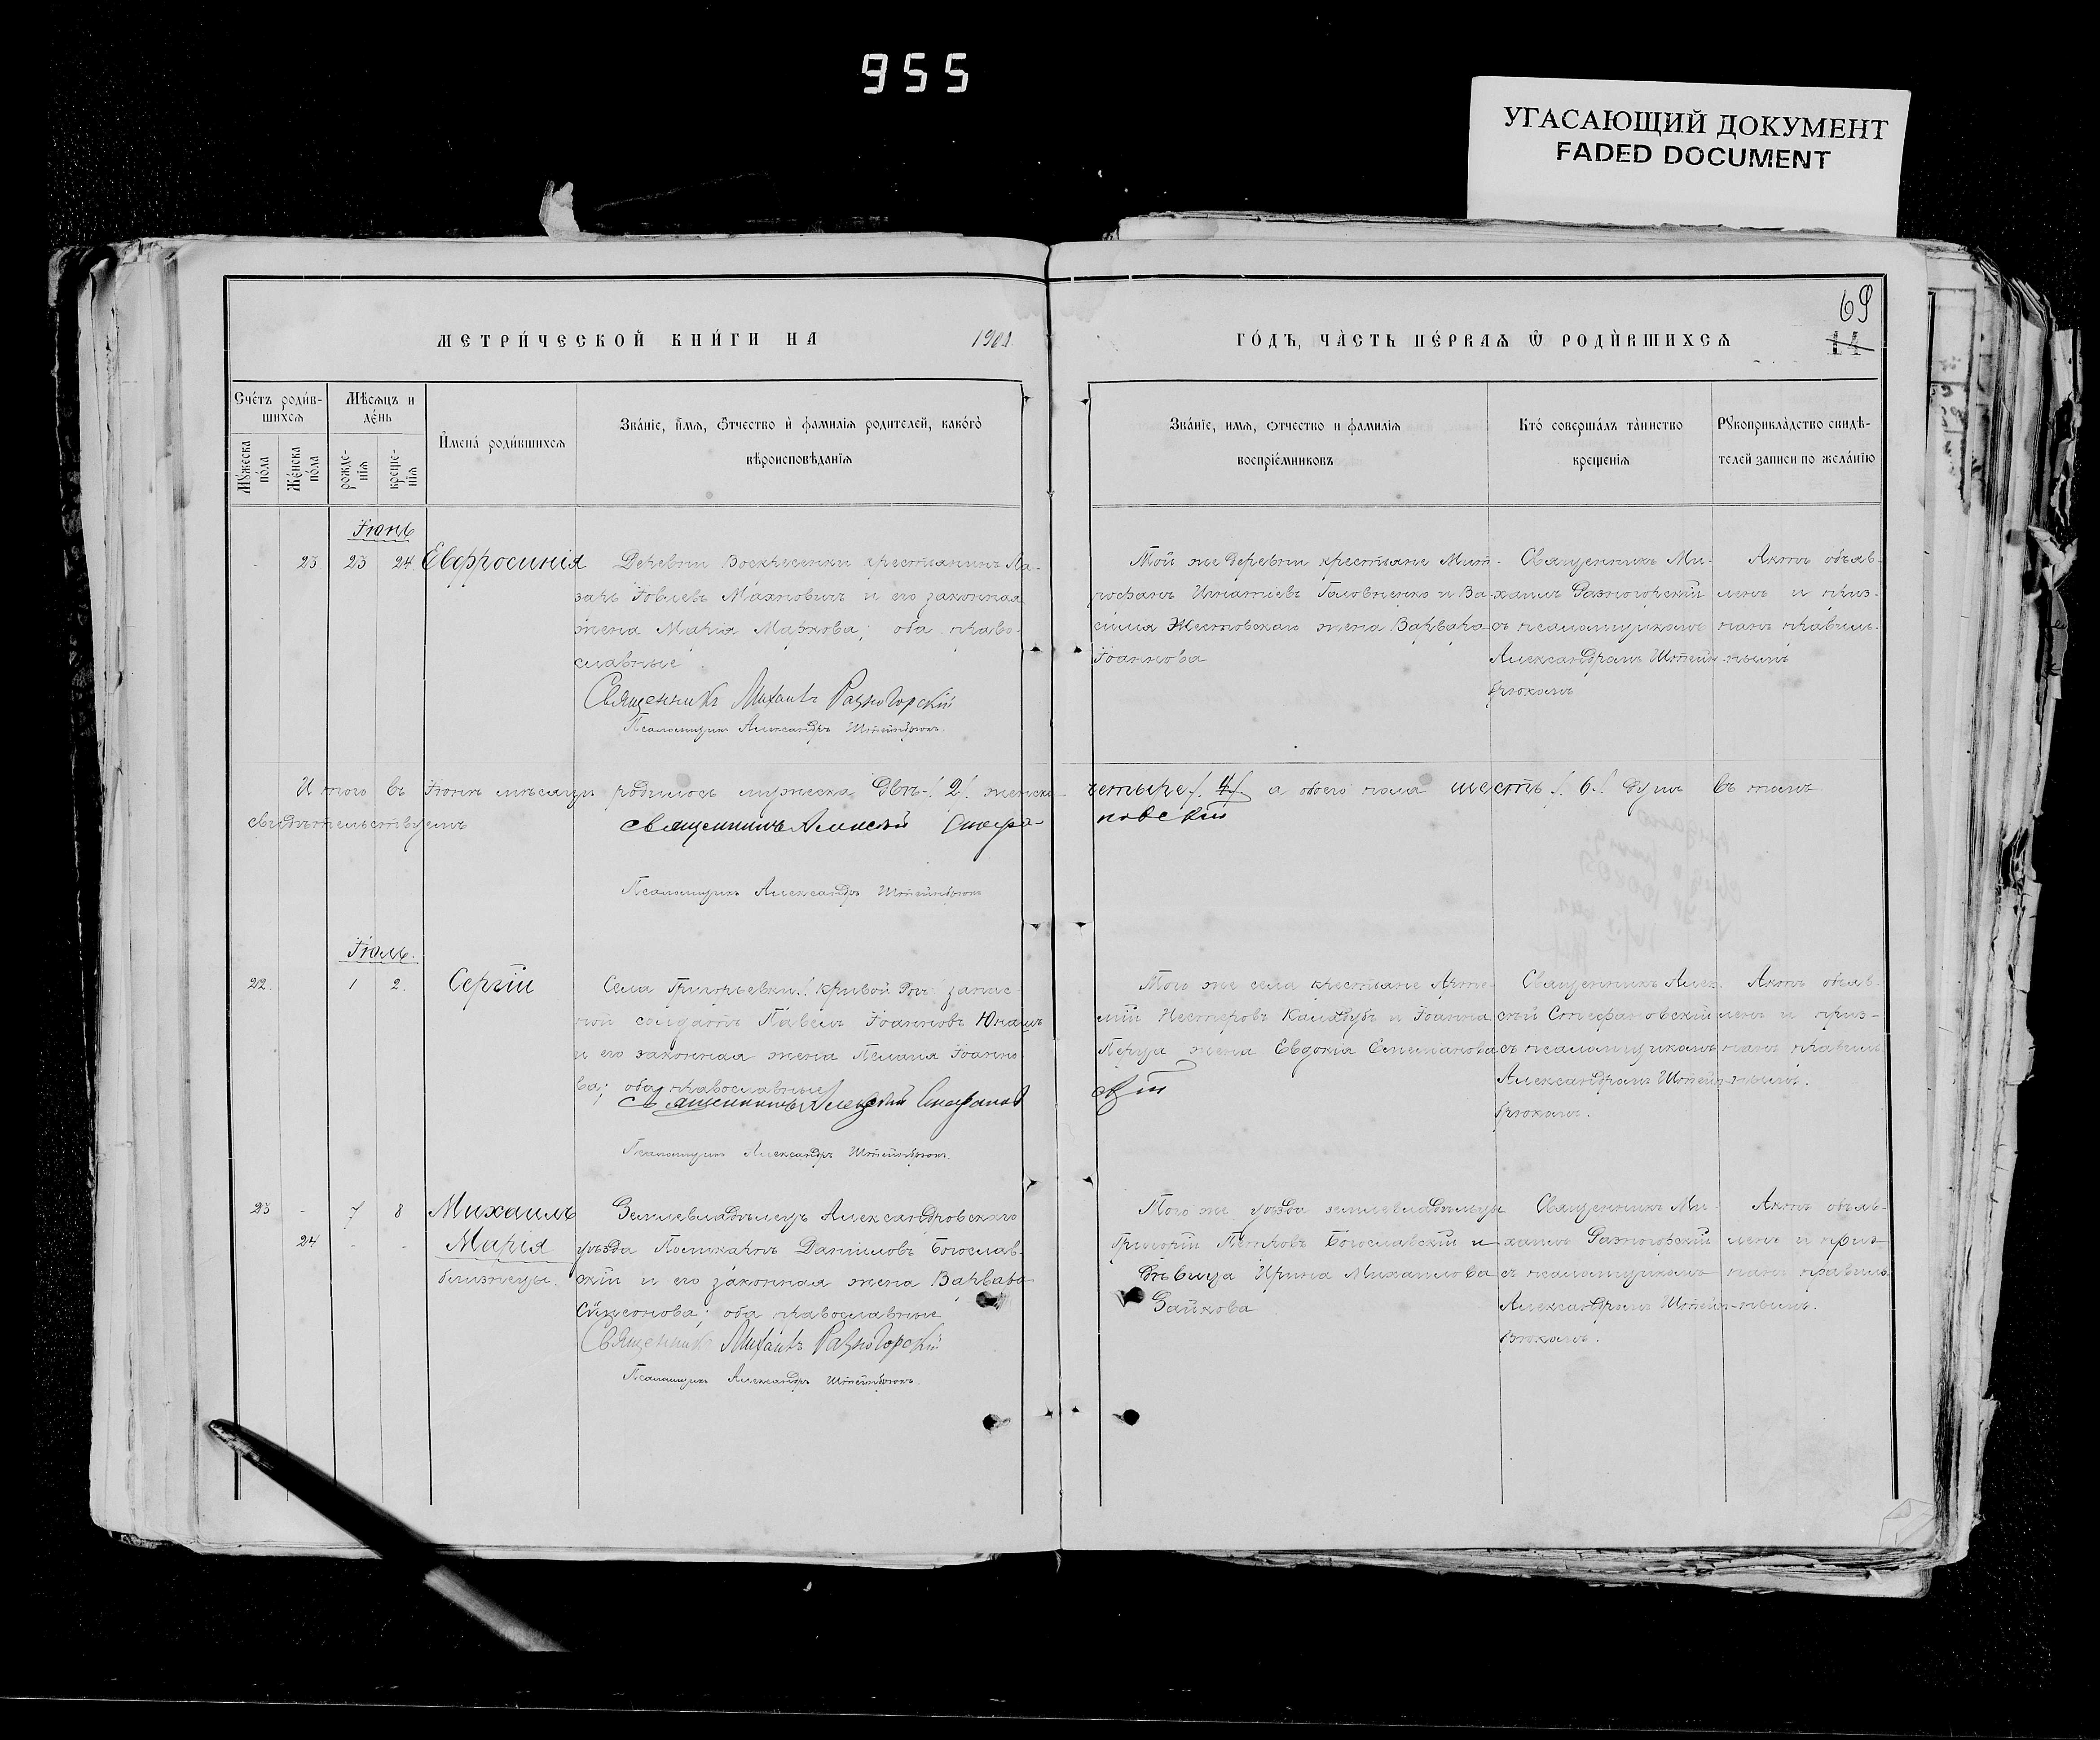 955
УГАСАЮЩИЙ ДОКУМЕНТ
FADED DOCUMENT
69
14
МЕТРИ́ЧЕСКОЙ КНИ́ГИ НА 1901
ГО́ДЪ, ЧА́СТЬ ПЕ́РВАѦ Ѡ РОДИ́ВШИХСѦ
Счетъ роди́в-
шихсѧ
Мѣсѧцъ и
де́нь
Мꙋ́жеска
по́ла
Же́нска
по́ла
рожде-
нїѧ
креще-
нїѧ
И҆мена́ роди́вшихсѧ
Зва́нїе, и҆́мѧ, ѻ҆́тчество и҆ фамилїѧ родителей, како́гѡ
вѣроисповѣ́данїѧ
Зва́нїе, имѧ, ѻтчество и фамилїѧ
воспрїе́мниковъ
Кто́ соверша́лъ та́инство
креще́нїѧ
Рꙋкоприкла́дство свидѣ-
телей записи по жела́нїю
Іюнь
23 23 24 Евфросинія
Деревни Воскресенки крестьянинъ Ла-
зарь Іовлевъ Махновичъ и его законная
жена Марія Маркова; оба право-
славные
Священникъ Михаилъ Разногорскій
Псаломщикъ Александръ Штейнбрюкъ.
Той же деревни крестьяне Мит-
рофанъ Игнатіевъ Головненко и Ва-
силія Жестовскаго жена Варвара
Іоаннова
Священникъ Ми-
хаилъ Разногорскій
съ псаломщикомъ
Александромъ Штейн-
брюкомъ
Актъ объяв-
ленъ и приз-
нанъ правиль-
нымъ
Итого въ Іюнѣ мѣсяцѣ родилось мужеска двѣ /. 2 /. женска четыре /. 4 /. а обоего пола шесть /. 6 /. душъ въ томъ
свидѣтельствуемъ
священникъ Алексій Стефа-
новскій
Псаломщикъ Александръ Штейнбрюкъ
Іюль.
22. 1 2. Сергій
Села Григорьевки /. Кривой Рогъ запас-
ной солдатъ Павелъ Іоанновъ Юнашъ
и его законная жена Пелагія Іоанно
ва; оба православные
священникъ Алексій Стефанов
скій
Псаломщикъ Александръ Штейнбрюкъ.
Того же села крестьяне Арте-
мій Несторовъ и Іоанна
жена Евдокія
Священникъ Алек-
сій Стефановскій
съ псаломщикомъ
Александромъ Штейн-
брюкомъ.
Актъ объяв-
ленъ и приз-
нанъ правиль-
нымъ.
23 - 7 8 Михаилъ
24 - - Марія
близнецы.
Землевладѣлецъ Александровскаго
уѣзда Поликарпъ Даніиловъ Богослав-
скій и его законная жена Варвара
Симеонова; оба православные
Священникъ Михаилъ Разногорскій
Псаломщикъ Александръ Штейнбрюкъ.
Того же уѣзда землевладѣльцы
Григорій Петровъ Богославскій и
дѣвица Ирина Михаилова
Зайкова
Священникъ Ми-
хаилъ Разногорскій
съ псаломщикомъ
Александромъ Штейн-
брюкомъ.
Актъ объяв-
ленъ и приз-
нанъ правиль-
нымъ.